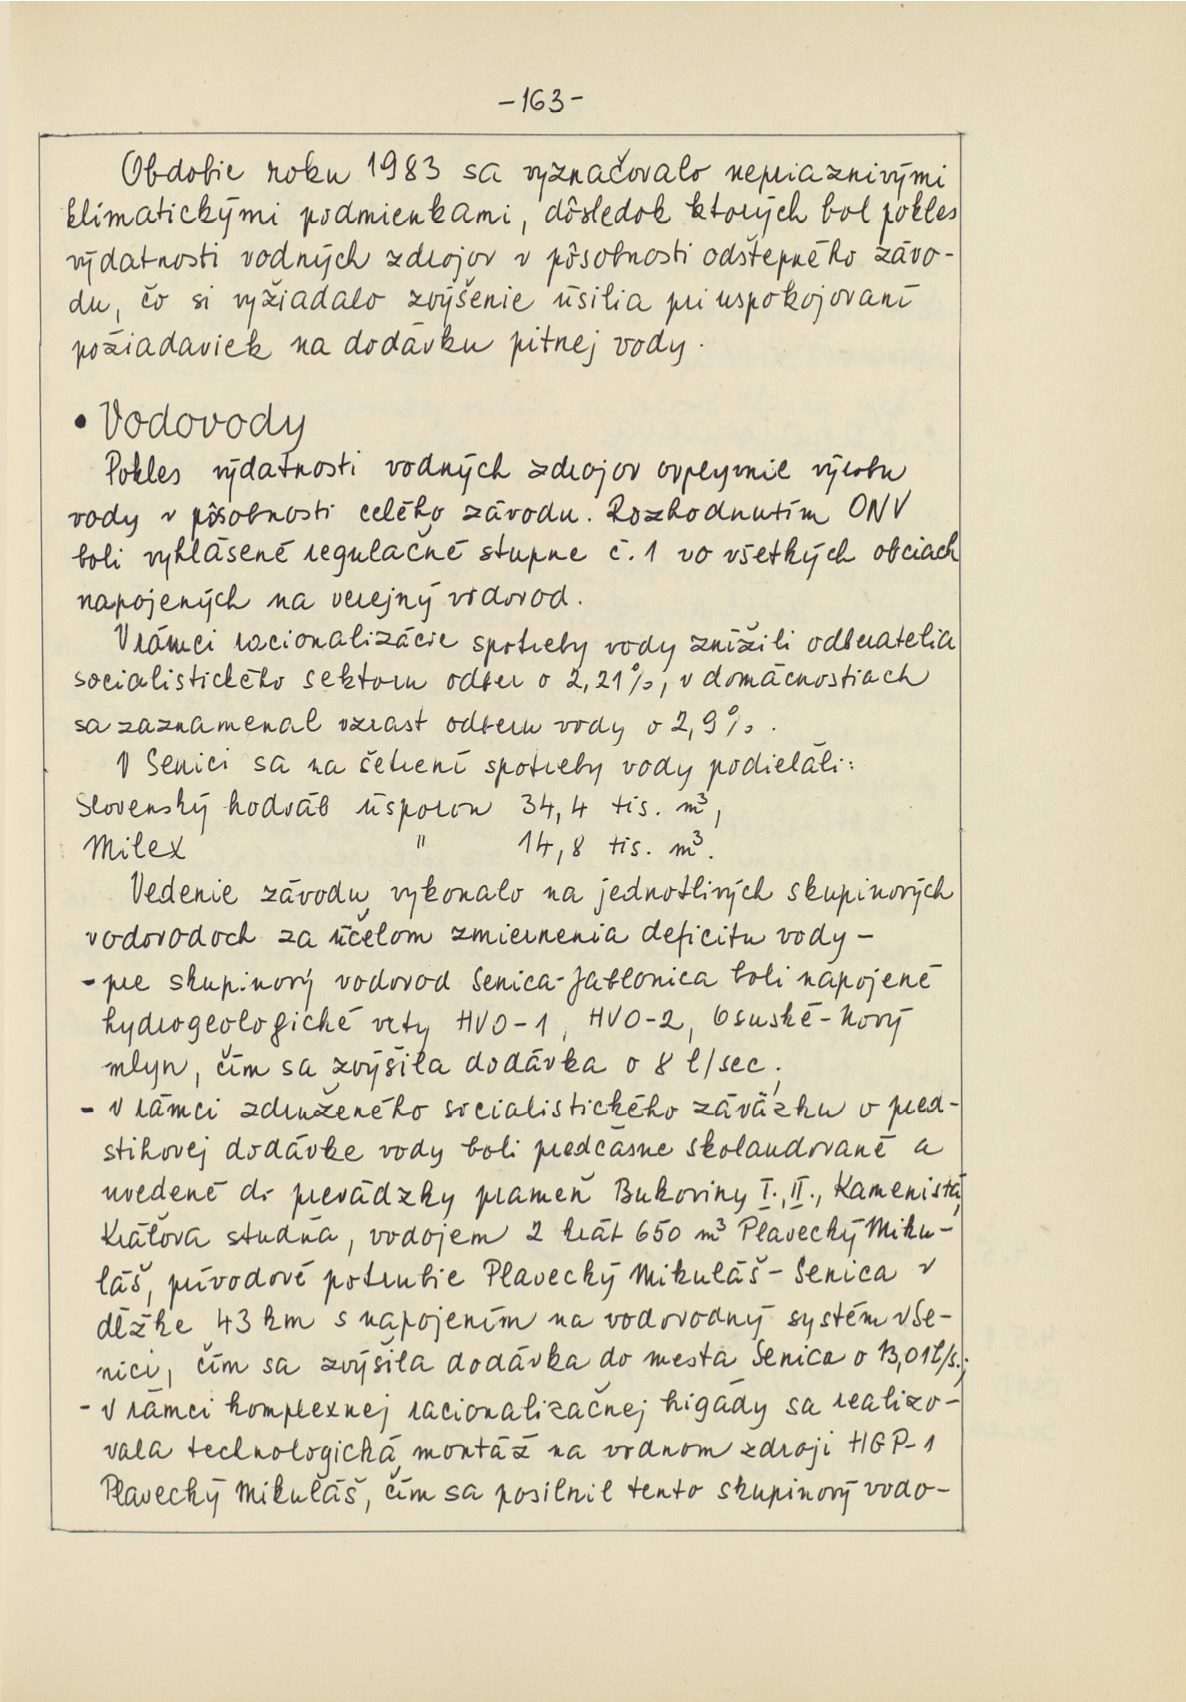 -163-
Obdobie roku 1983 sa vyznačovalo nepriaznivými
klimatickými podmienkami, dôsledok ktorých bol pokles
výdatnosti vodných zdrojov v pôsobnosti odštepného závo-
du, čo si vyžiadalo zvýšenie úsilia pri uspokojovaní
požiadaviek na dodávku pitnej vody.
• Vodovody
Pokles výdatnosti vodných zdrojov ovplyvnil výrobu
vody v pôsobnosti celého závodu. Rozhodnutím ONV
boli vyhlásené regulačné stupne č. 1 vo všetkých obciach
napojených na verejný vodovod.
V rámci racionalizácie spotreby vody znížili odberatelia
socialistického sektoru odber o 2,21%, v domácnostiach
sa zaznamenal vzrast odberu vody o 2,9%.
V Senici sa na šetrení spotreby vody podieľali:
Slovenský hodváb úsporou 34,4 tis. m³,
Milex " 14,8 tis. m³.
Vedenie závodu vykonalo na jednotlivých skupinových
vodovodoch za účelom zmiernenia deficitu vody -
- pre skupinový vodovod Senica-Jablonica boli napojené
hydrogeologické vrty HVO-1, HVO-2, Osuské-Nový
mlyn, čím sa zvýšila dodávka o 8 l/sec;
- v rámci združeného socialistického záväzku o pred-
stihovej dodávke vody boli predčasne skolaudované a
uvedené do prevádzky prameň Bukoviny I., II., Kamenistá,
Kráľova studňa, vodojem 2 krát 650 m³ Plavecký Miku-
láš, prívodové potrubie Plavecký Mikuláš - Senica v
dĺžke 43 km s napojením na vodovodný systém v Se-
nici, čím sa zvýšila dodávka do mesta Senica o 13,01 l/s.;
- v rámci komplexnej racionalizačnej brigády sa realizo-
vala technologická montáž na vodnom zdroji HGP-1
Plavecký Mikuláš, čím sa posilnil tento skupinový vodo-